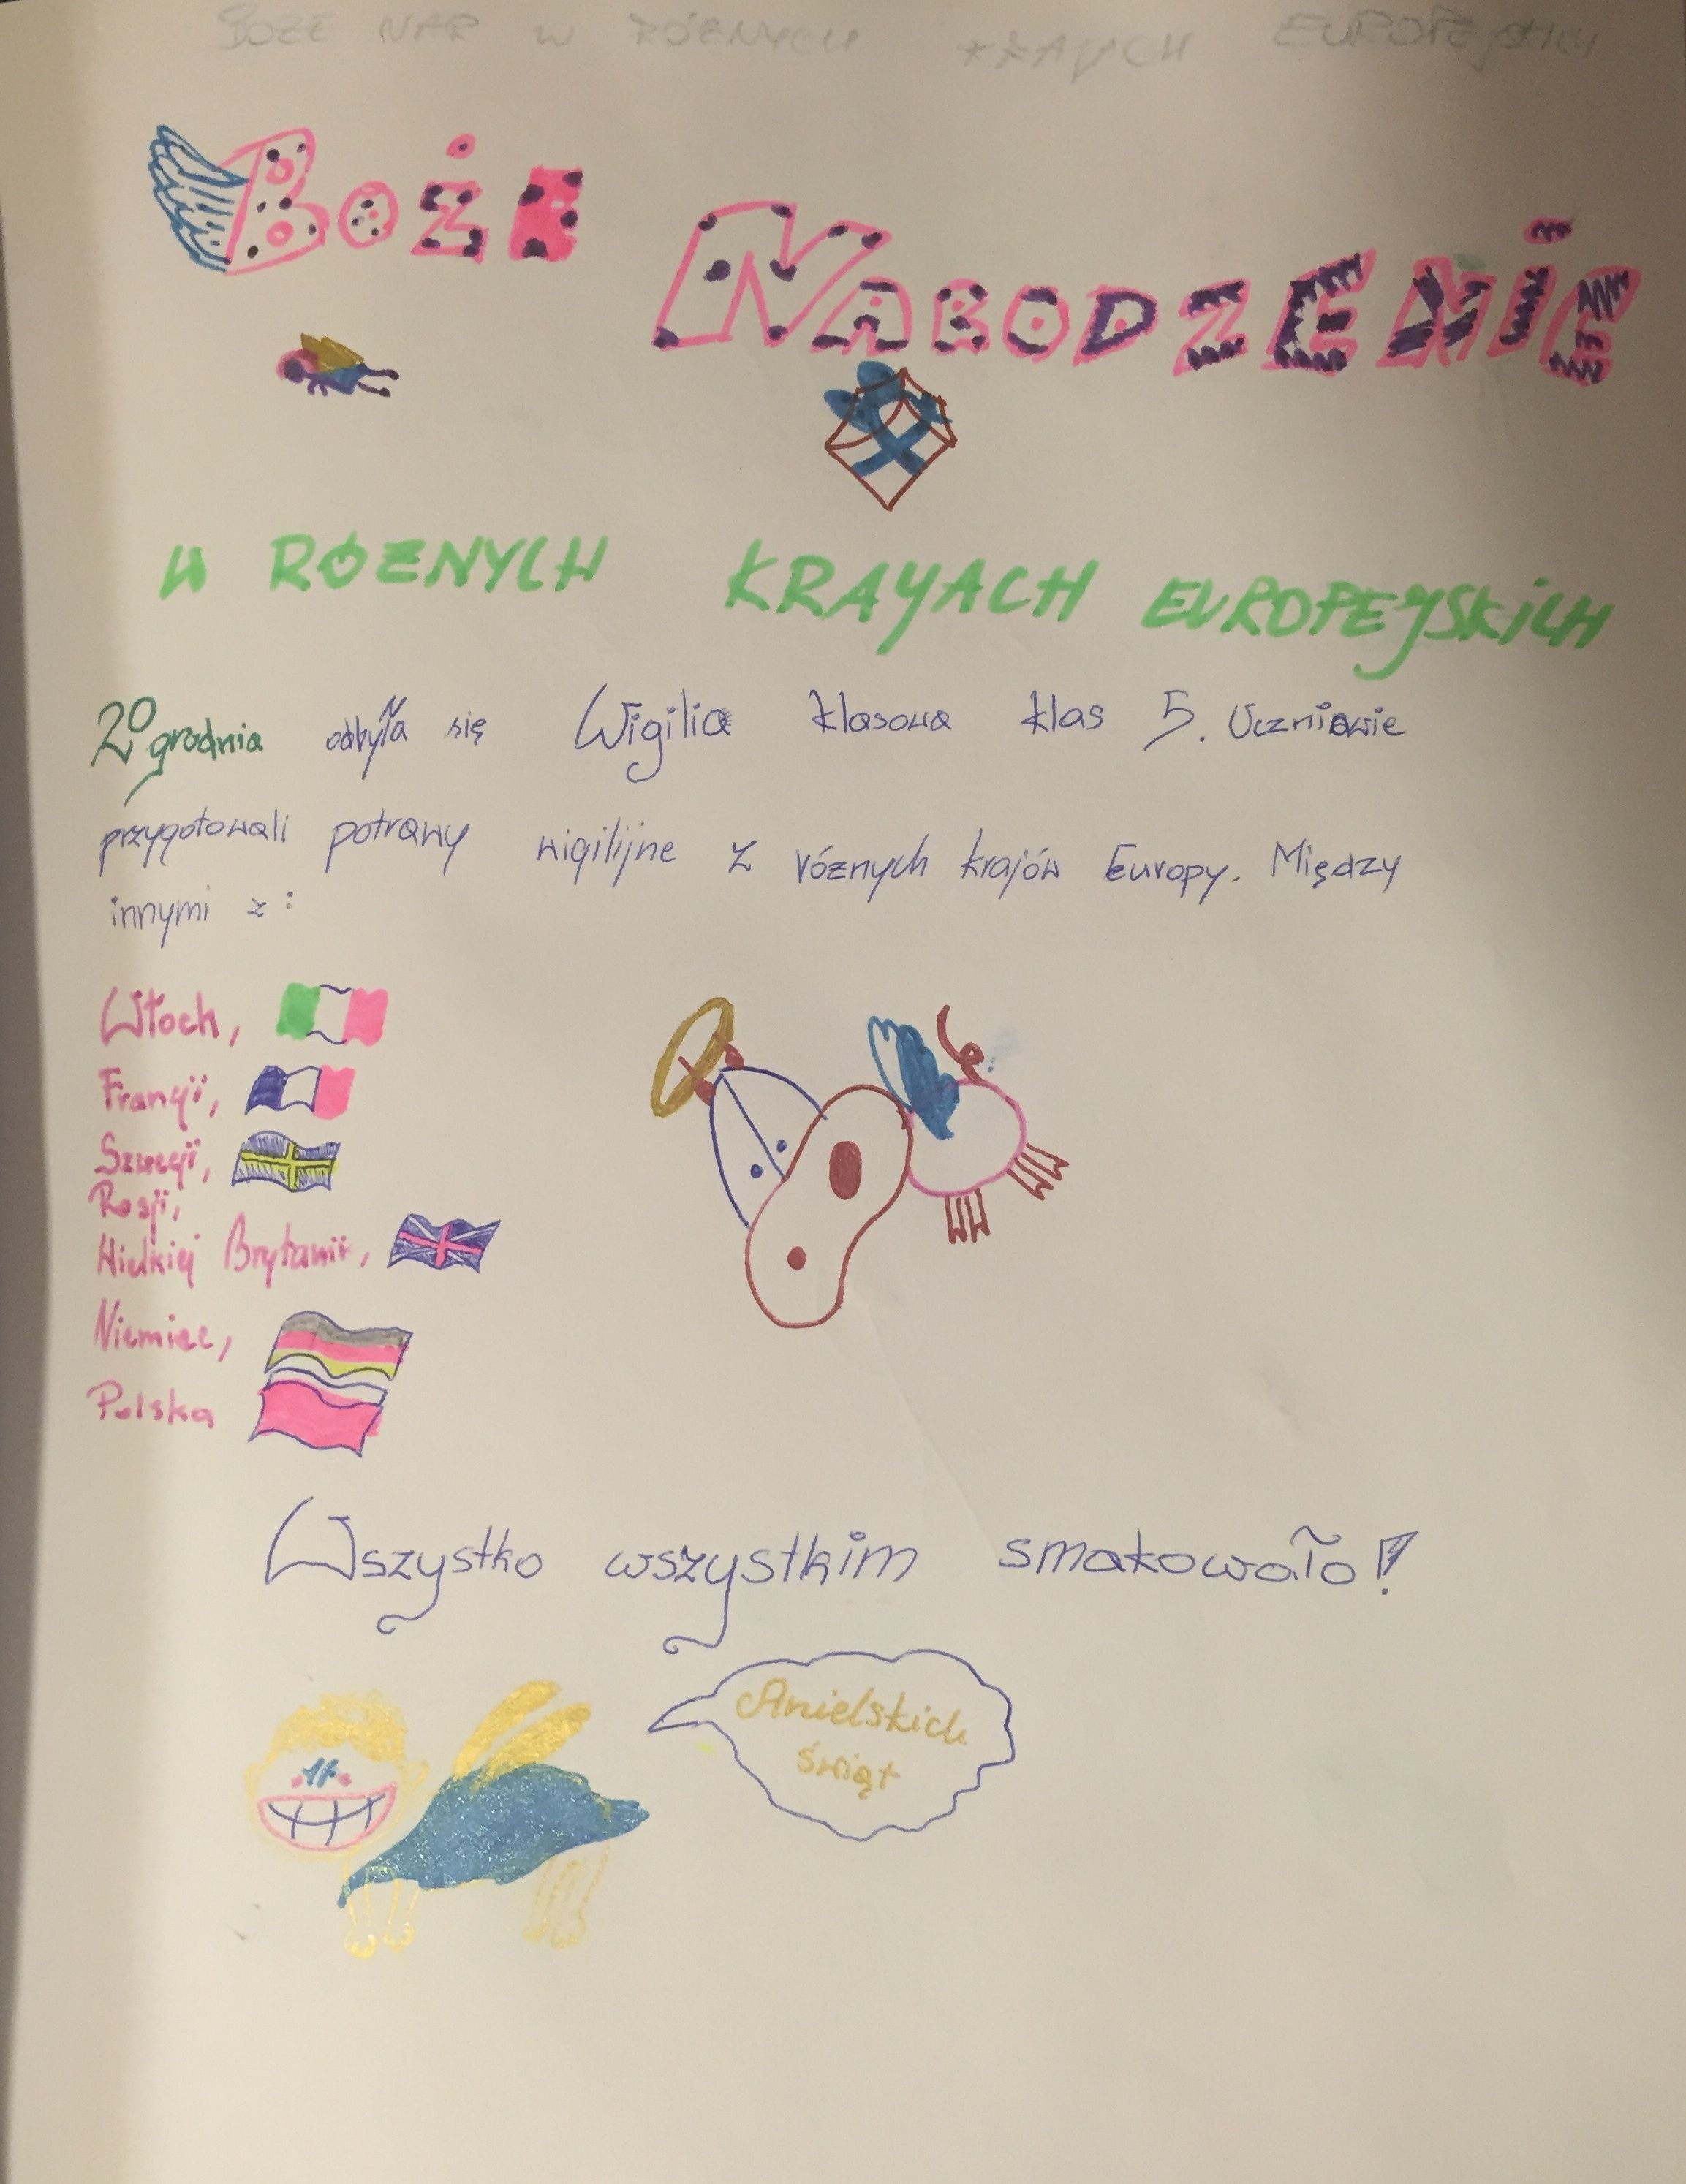 BOŻE NAR W RÓŻNYCH KRAJACH EUROPEJSKICH
BOŻE NARODZENIE
W RÓŻNYCH KRAJACH EUROPEJSKICH
20 grudnia odbyła się Wigilia klasowa klas 5. Uczniowie
przygotowali potrawy wigilijne z różnych krajów Europy. Między
innymi z:
Włoch,
Francji,
Szwecji,
Rosji,
Wielkiej Brytanii,
Niemiec,
Polska
Wszystko wszystkim smakowało!
Anielskich
świąt